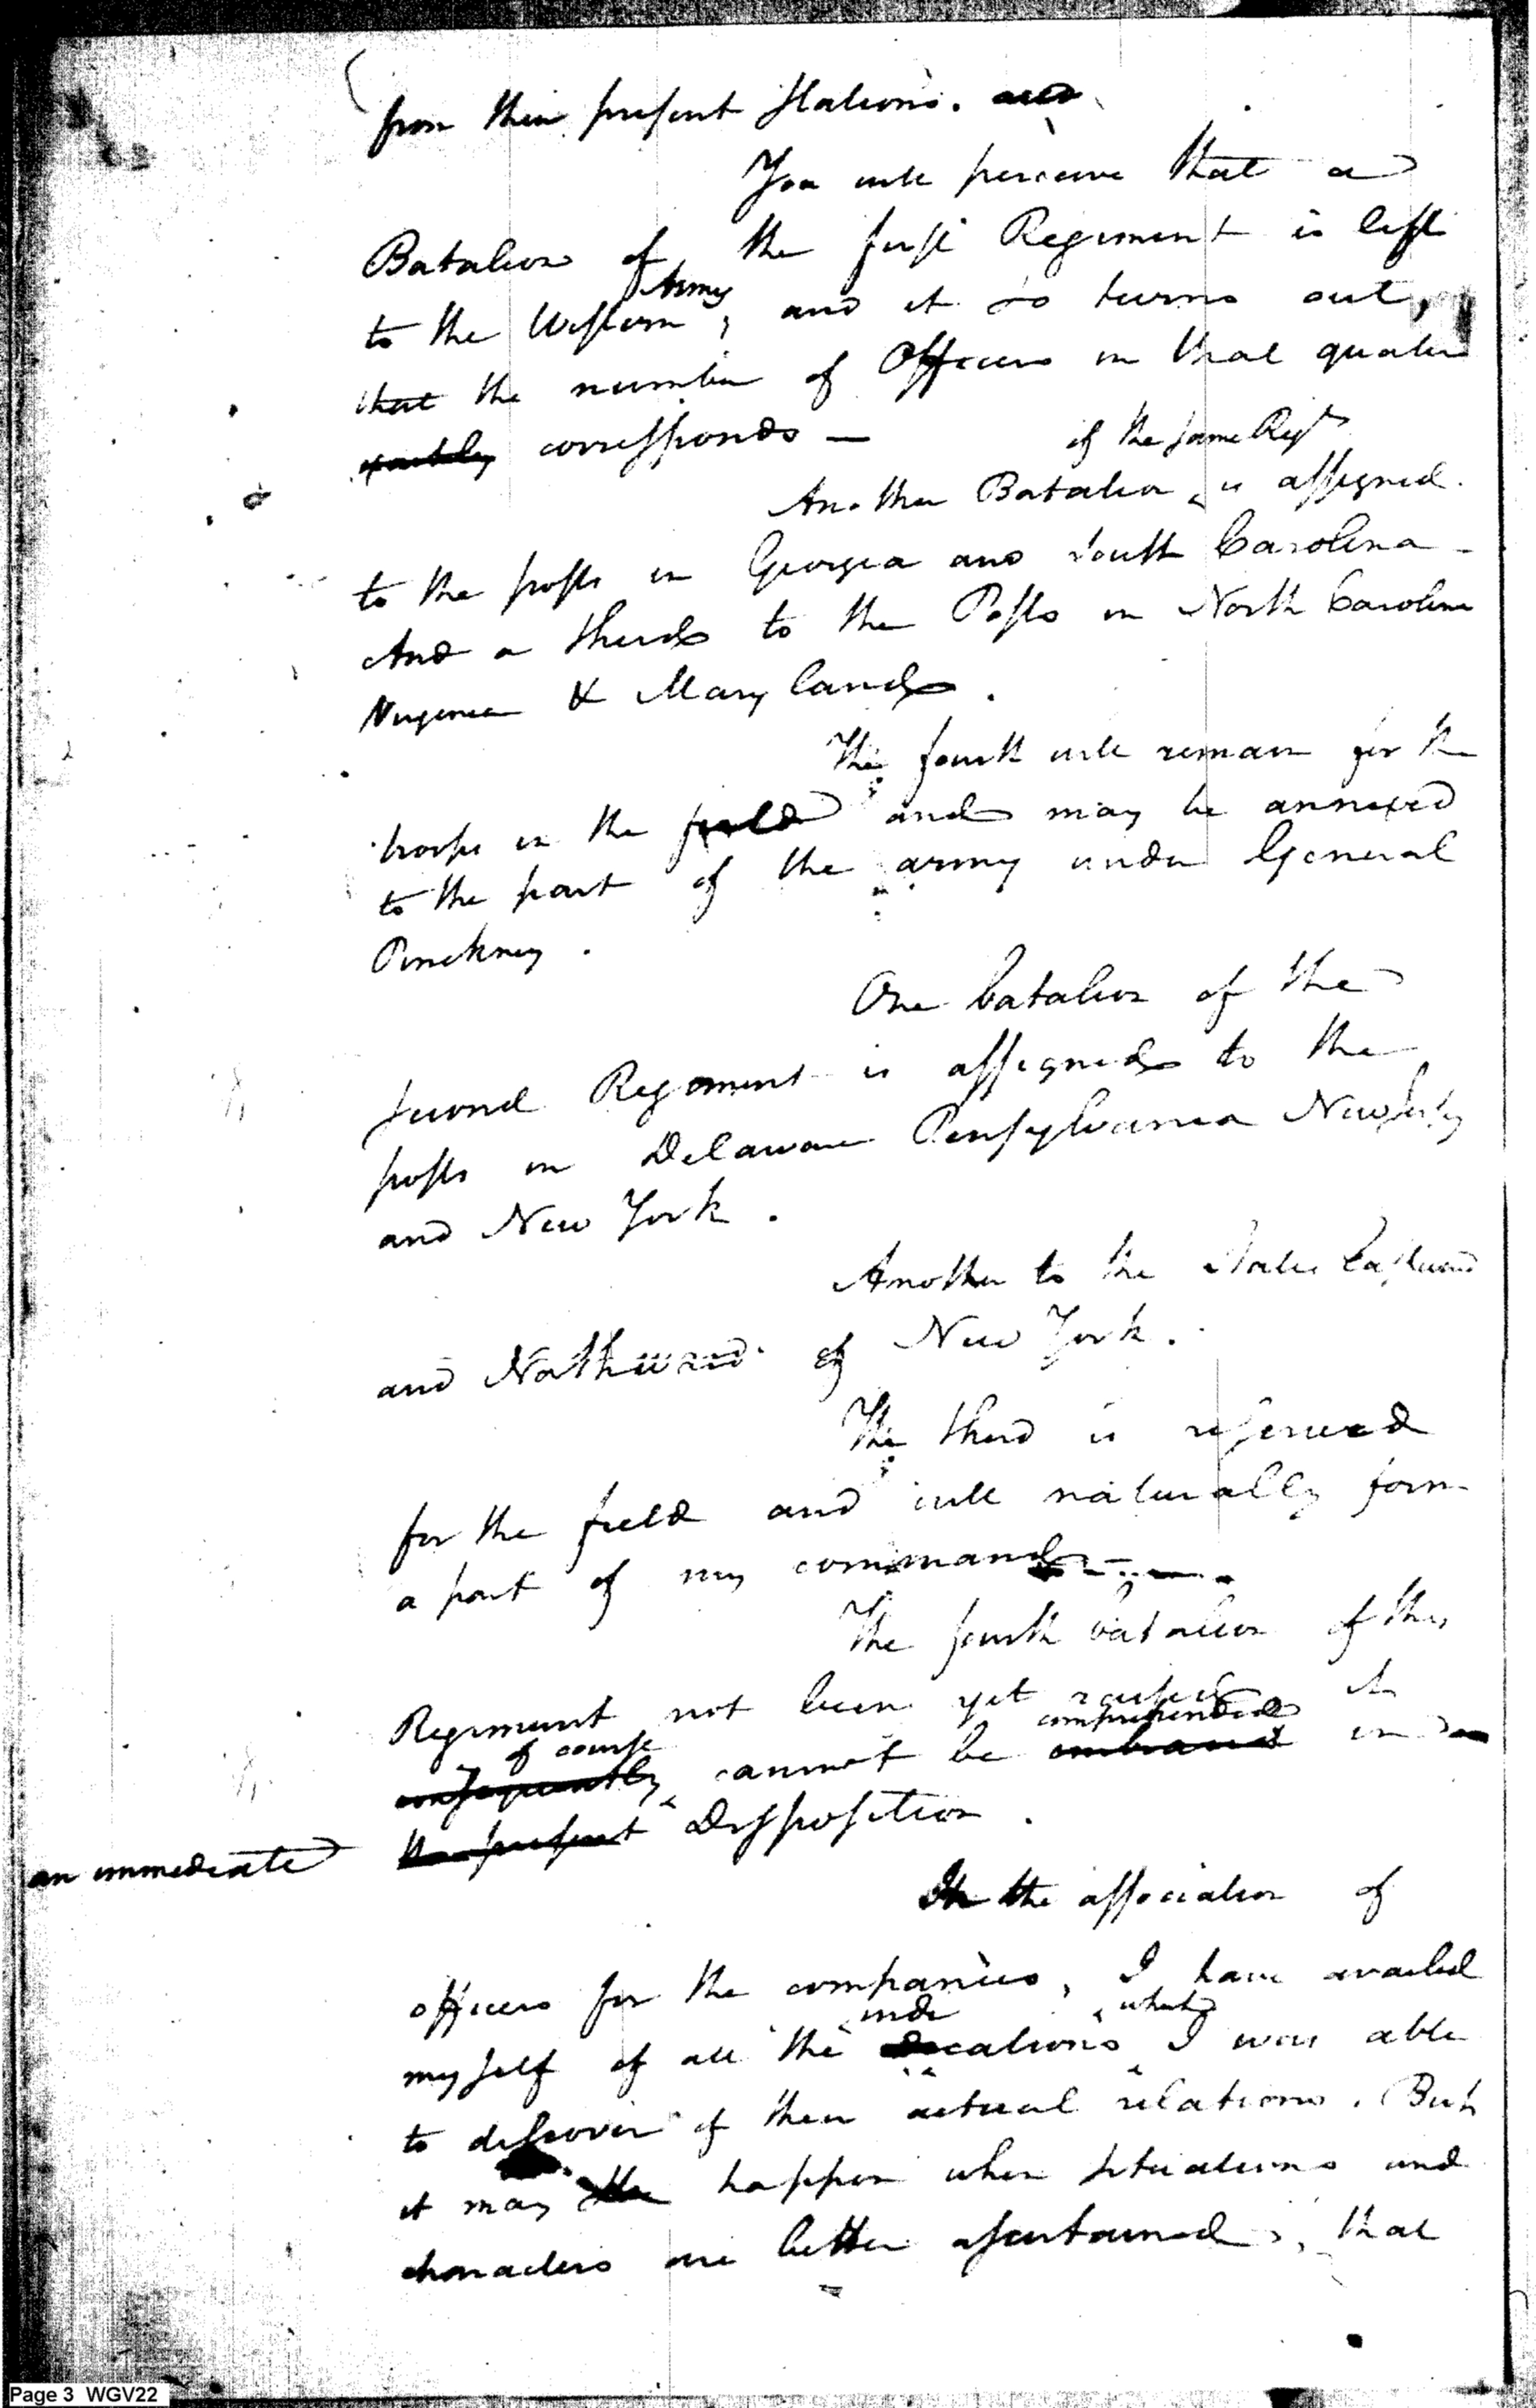 from their present stations. and
You will perceive that a
Batalion of the first Regiment is left
to the Western Army, and it so turns out,
that the number of Officers in that quarter
exactly corresponds —
of the same Regt
Another Batalion is assigned
to the posts in Georgia and South Carolina -
And a third to the Posts in North Carolina
Virginia & Maryland.
The fourth will remain for the
troops in the field and may be annexed
to the part of the army under General
Pinckney.
One batalion of the
second Regiment is assigned to the
posts in Delaware Pensylvania New Jersey
and New York.
Another to the States Eastward
and Northward of New York.
The third is reserved
for the field and will naturally form
a part of my command
The fourth batalion of this
Regiment not been yet raised it
of course comprehended
consequently cannot be embraced in
an immediate the present Disposition.
In the association of
officers for the companies, I have availed
indi which
myself of all the cations I was able
to discover of their actual relations. But
it may happen when situations and
characters are better ascertained, that
Page 3 WGV22